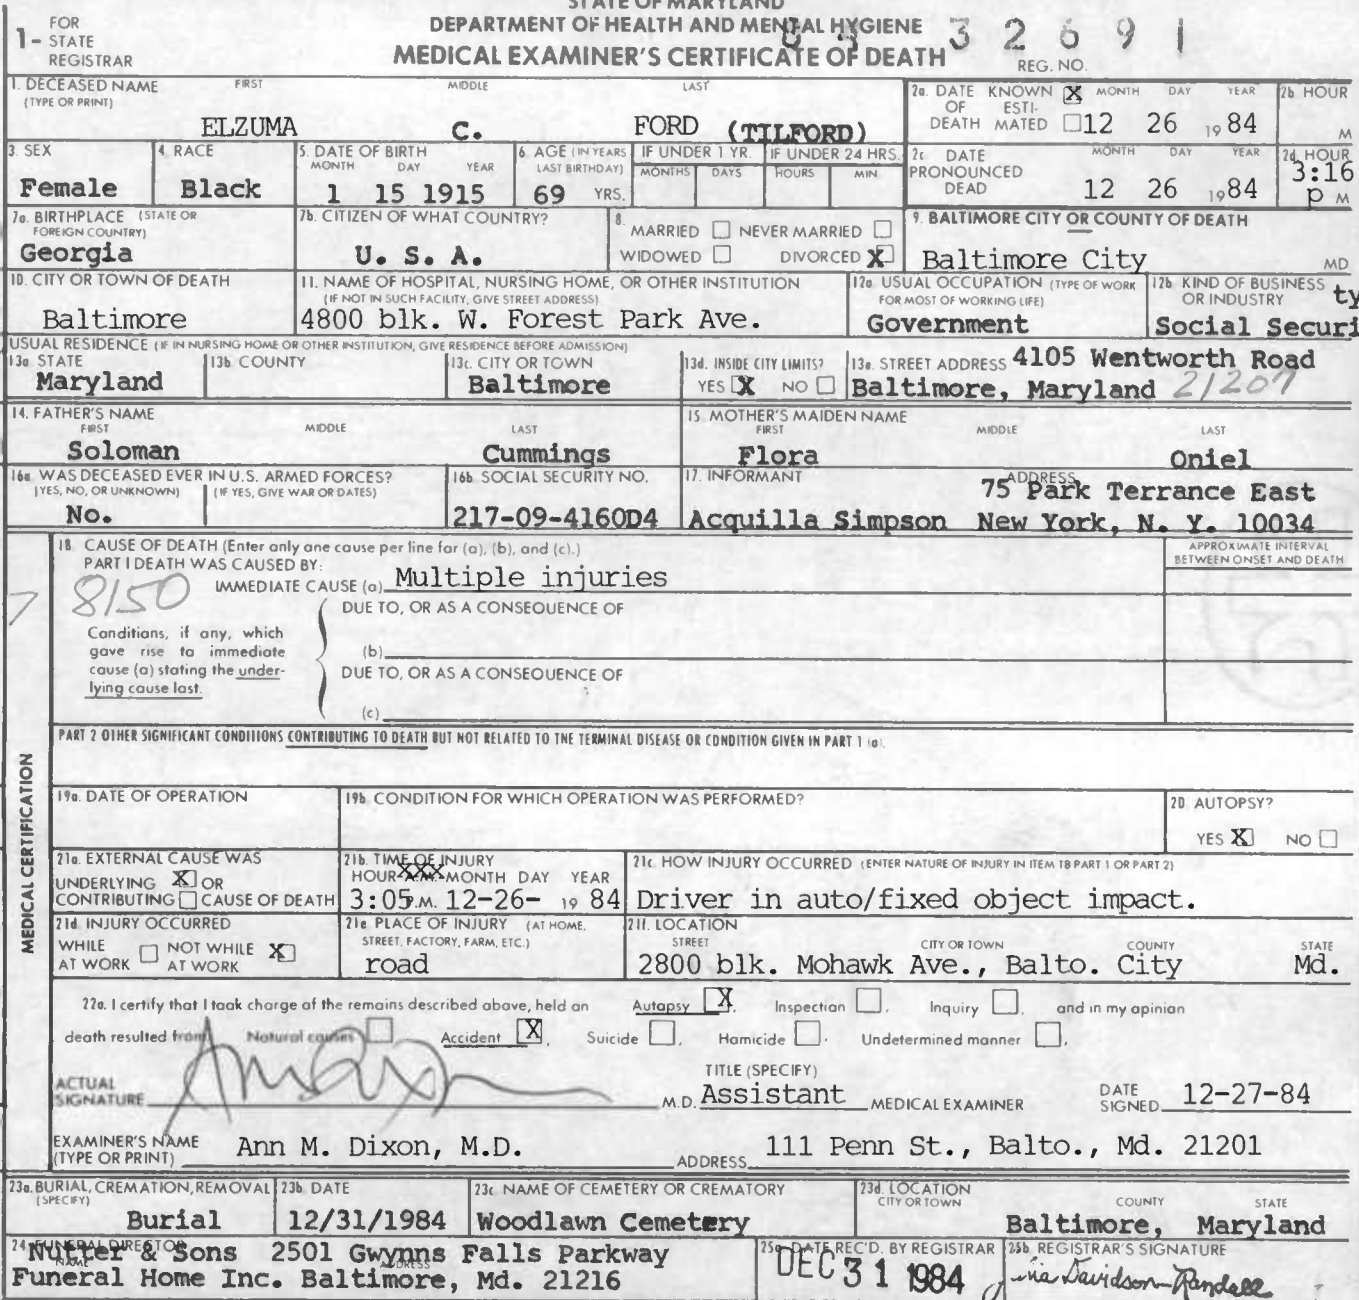 STATE OF MARYLAND
DEPARTMENT OF HEALTH AND MENTAL HYGIENE
MEDICAL EXAMINER'S CERTIFICATE OF DEATH
1- FOR STATE REGISTRAR
32691
REG. NO.
1. DECEASED NAME (TYPE OR PRINT) FIRST MIDDLE LAST
ELZUMA C. FORD (TILFORD)
2a. DATE OF DEATH KNOWN X ESTIMATED MONTH DAY YEAR
12 26 1984
2b HOUR M
3. SEX
Female
4. RACE
Black
5. DATE OF BIRTH MONTH DAY YEAR
1 15 1915
6. AGE (IN YEARS LAST BIRTHDAY)
69 YRS.
IF UNDER 1 YR. MONTHS DAYS
IF UNDER 24 HRS. HOURS MIN
2c DATE PRONOUNCED DEAD MONTH DAY YEAR
12 26 1984
2d HOUR
3:16 p M
7a. BIRTHPLACE (STATE OR FOREIGN COUNTRY)
Georgia
7b. CITIZEN OF WHAT COUNTRY?
U. S. A.
8. MARRIED NEVER MARRIED
WIDOWED DIVORCED X
9. BALTIMORE CITY OR COUNTY OF DEATH
Baltimore City MD
10. CITY OR TOWN OF DEATH
Baltimore
11. NAME OF HOSPITAL, NURSING HOME, OR OTHER INSTITUTION
(IF NOT IN SUCH FACILITY, GIVE STREET ADDRESS)
4800 blk. W. Forest Park Ave.
12a USUAL OCCUPATION (TYPE OF WORK FOR MOST OF WORKING LIFE)
Government
12b. KIND OF BUSINESS OR INDUSTRY
Social Securi ty
USUAL RESIDENCE (IF IN NURSING HOME OR OTHER INSTITUTION, GIVE RESIDENCE BEFORE ADMISSION)
13a. STATE
Maryland
13b. COUNTY
13c. CITY OR TOWN
Baltimore
13d. INSIDE CITY LIMITS?
YES X NO
13e. STREET ADDRESS 4105 Wentworth Road
Baltimore, Maryland 21207
14. FATHER'S NAME FIRST MIDDLE LAST
Soloman Cummings
15. MOTHER'S MAIDEN NAME FIRST MIDDLE LAST
Flora Oniel
16a WAS DECEASED EVER IN U.S. ARMED FORCES?
(YES, NO, OR UNKNOWN) (IF YES, GIVE WAR OR DATES)
No.
16b. SOCIAL SECURITY NO.
217-09-4160D4
17. INFORMANT ADDRESS
75 Park Terrance East
Acquilla Simpson New York, N. Y. 10034
MEDICAL CERTIFICATION
18. CAUSE OF DEATH (Enter only one cause per line for (a), (b), and (c).)
PART I DEATH WAS CAUSED BY:
8150
IMMEDIATE CAUSE (a) Multiple injuries
APPROXIMATE INTERVAL BETWEEN ONSET AND DEATH
DUE TO, OR AS A CONSEQUENCE OF
Conditions, if any, which gave rise to immediate cause (a) stating the underlying cause last.
(b)
DUE TO, OR AS A CONSEQUENCE OF
(c)
PART 2 OTHER SIGNIFICANT CONDITIONS CONTRIBUTING TO DEATH BUT NOT RELATED TO THE TERMINAL DISEASE OR CONDITION GIVEN IN PART 1 (a).
19a. DATE OF OPERATION
19b. CONDITION FOR WHICH OPERATION WAS PERFORMED?
20. AUTOPSY?
YES X NO
21a. EXTERNAL CAUSE WAS
UNDERLYING X OR
CONTRIBUTING CAUSE OF DEATH
21b. TIME OF INJURY
HOUR XXX MONTH DAY YEAR
3:05 P.M. 12-26- 19 84
21c. HOW INJURY OCCURRED (ENTER NATURE OF INJURY IN ITEM 18 PART 1 OR PART 2)
Driver in auto/fixed object impact.
21d. INJURY OCCURRED
WHILE AT WORK NOT WHILE AT WORK X
21e. PLACE OF INJURY (AT HOME, STREET, FACTORY, FARM, ETC.)
road
21f. LOCATION STREET CITY OR TOWN COUNTY STATE
2800 blk. Mohawk Ave., Balto. City Md.
22a. I certify that I took charge of the remains described above, held an Autopsy X, Inspection, Inquiry, and in my opinion
death resulted from Natural causes Accident X, Suicide, Homicide, Undetermined manner
ACTUAL SIGNATURE
M.D. TITLE (SPECIFY) Assistant MEDICAL EXAMINER
DATE SIGNED 12-27-84
EXAMINER'S NAME (TYPE OR PRINT) Ann M. Dixon, M.D.
ADDRESS 111 Penn St., Balto., Md. 21201
23a. BURIAL, CREMATION, REMOVAL (SPECIFY)
Burial
23b. DATE
12/31/1984
23c. NAME OF CEMETERY OR CREMATORY
Woodlawn Cemetery
23d. LOCATION CITY OR TOWN COUNTY STATE
Baltimore, Maryland
24. FUNERAL DIRECTOR NAME ADDRESS
Nutter & Sons 2501 Gwynns Falls Parkway
Funeral Home Inc. Baltimore, Md. 21216
25a. DATE REC'D. BY REGISTRAR
DEC 31 1984
25b. REGISTRAR'S SIGNATURE
Davidson-Randall